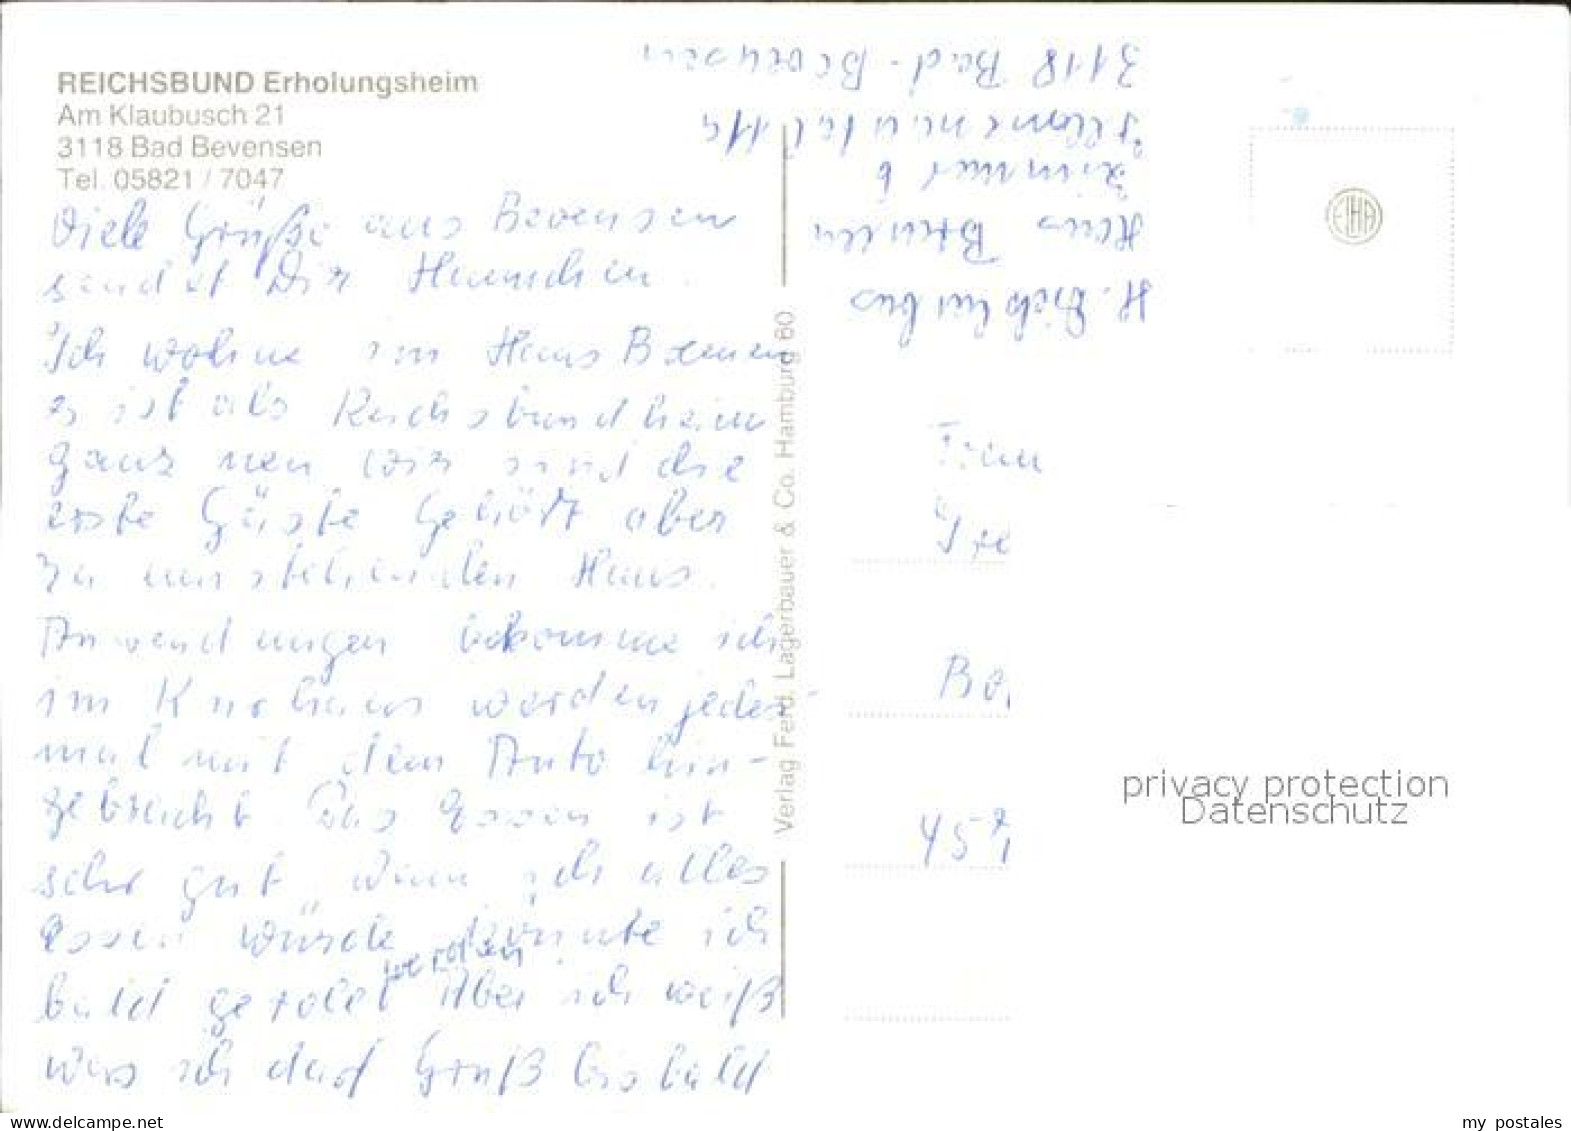 REICHSBUND Erholungsheim
Am Klaubusch 21
3118 Bad Bevensen
Tel. 05821 / 7047
Viele Grüße aus Bevensen
sendet Dir Hannchen.
Ich wohne im Haus Bremen
es ist als Reichsbundheim
ganz neu wir sind die
erste Gäste Gehört aber
zu umstehenden Haus.
Anwendungen bekomme ich
im Kurhaus werden jedes
mal mit dem Auto hin-
gebracht Das Essen ist
sehr gut, wenn ich alles
Essen würde könnte ich
bald gerolet werden Aber ich weiß
was ich darf Gruß bis bald
Verlag Ferd. Lagerbauer & Co. Hamburg 60
H.
Haus Bremen
Zimmer 6
3118 Bad-Bevensen
EZHA
Frau
Bo
457
privacy protection
Datenschutz
my postales